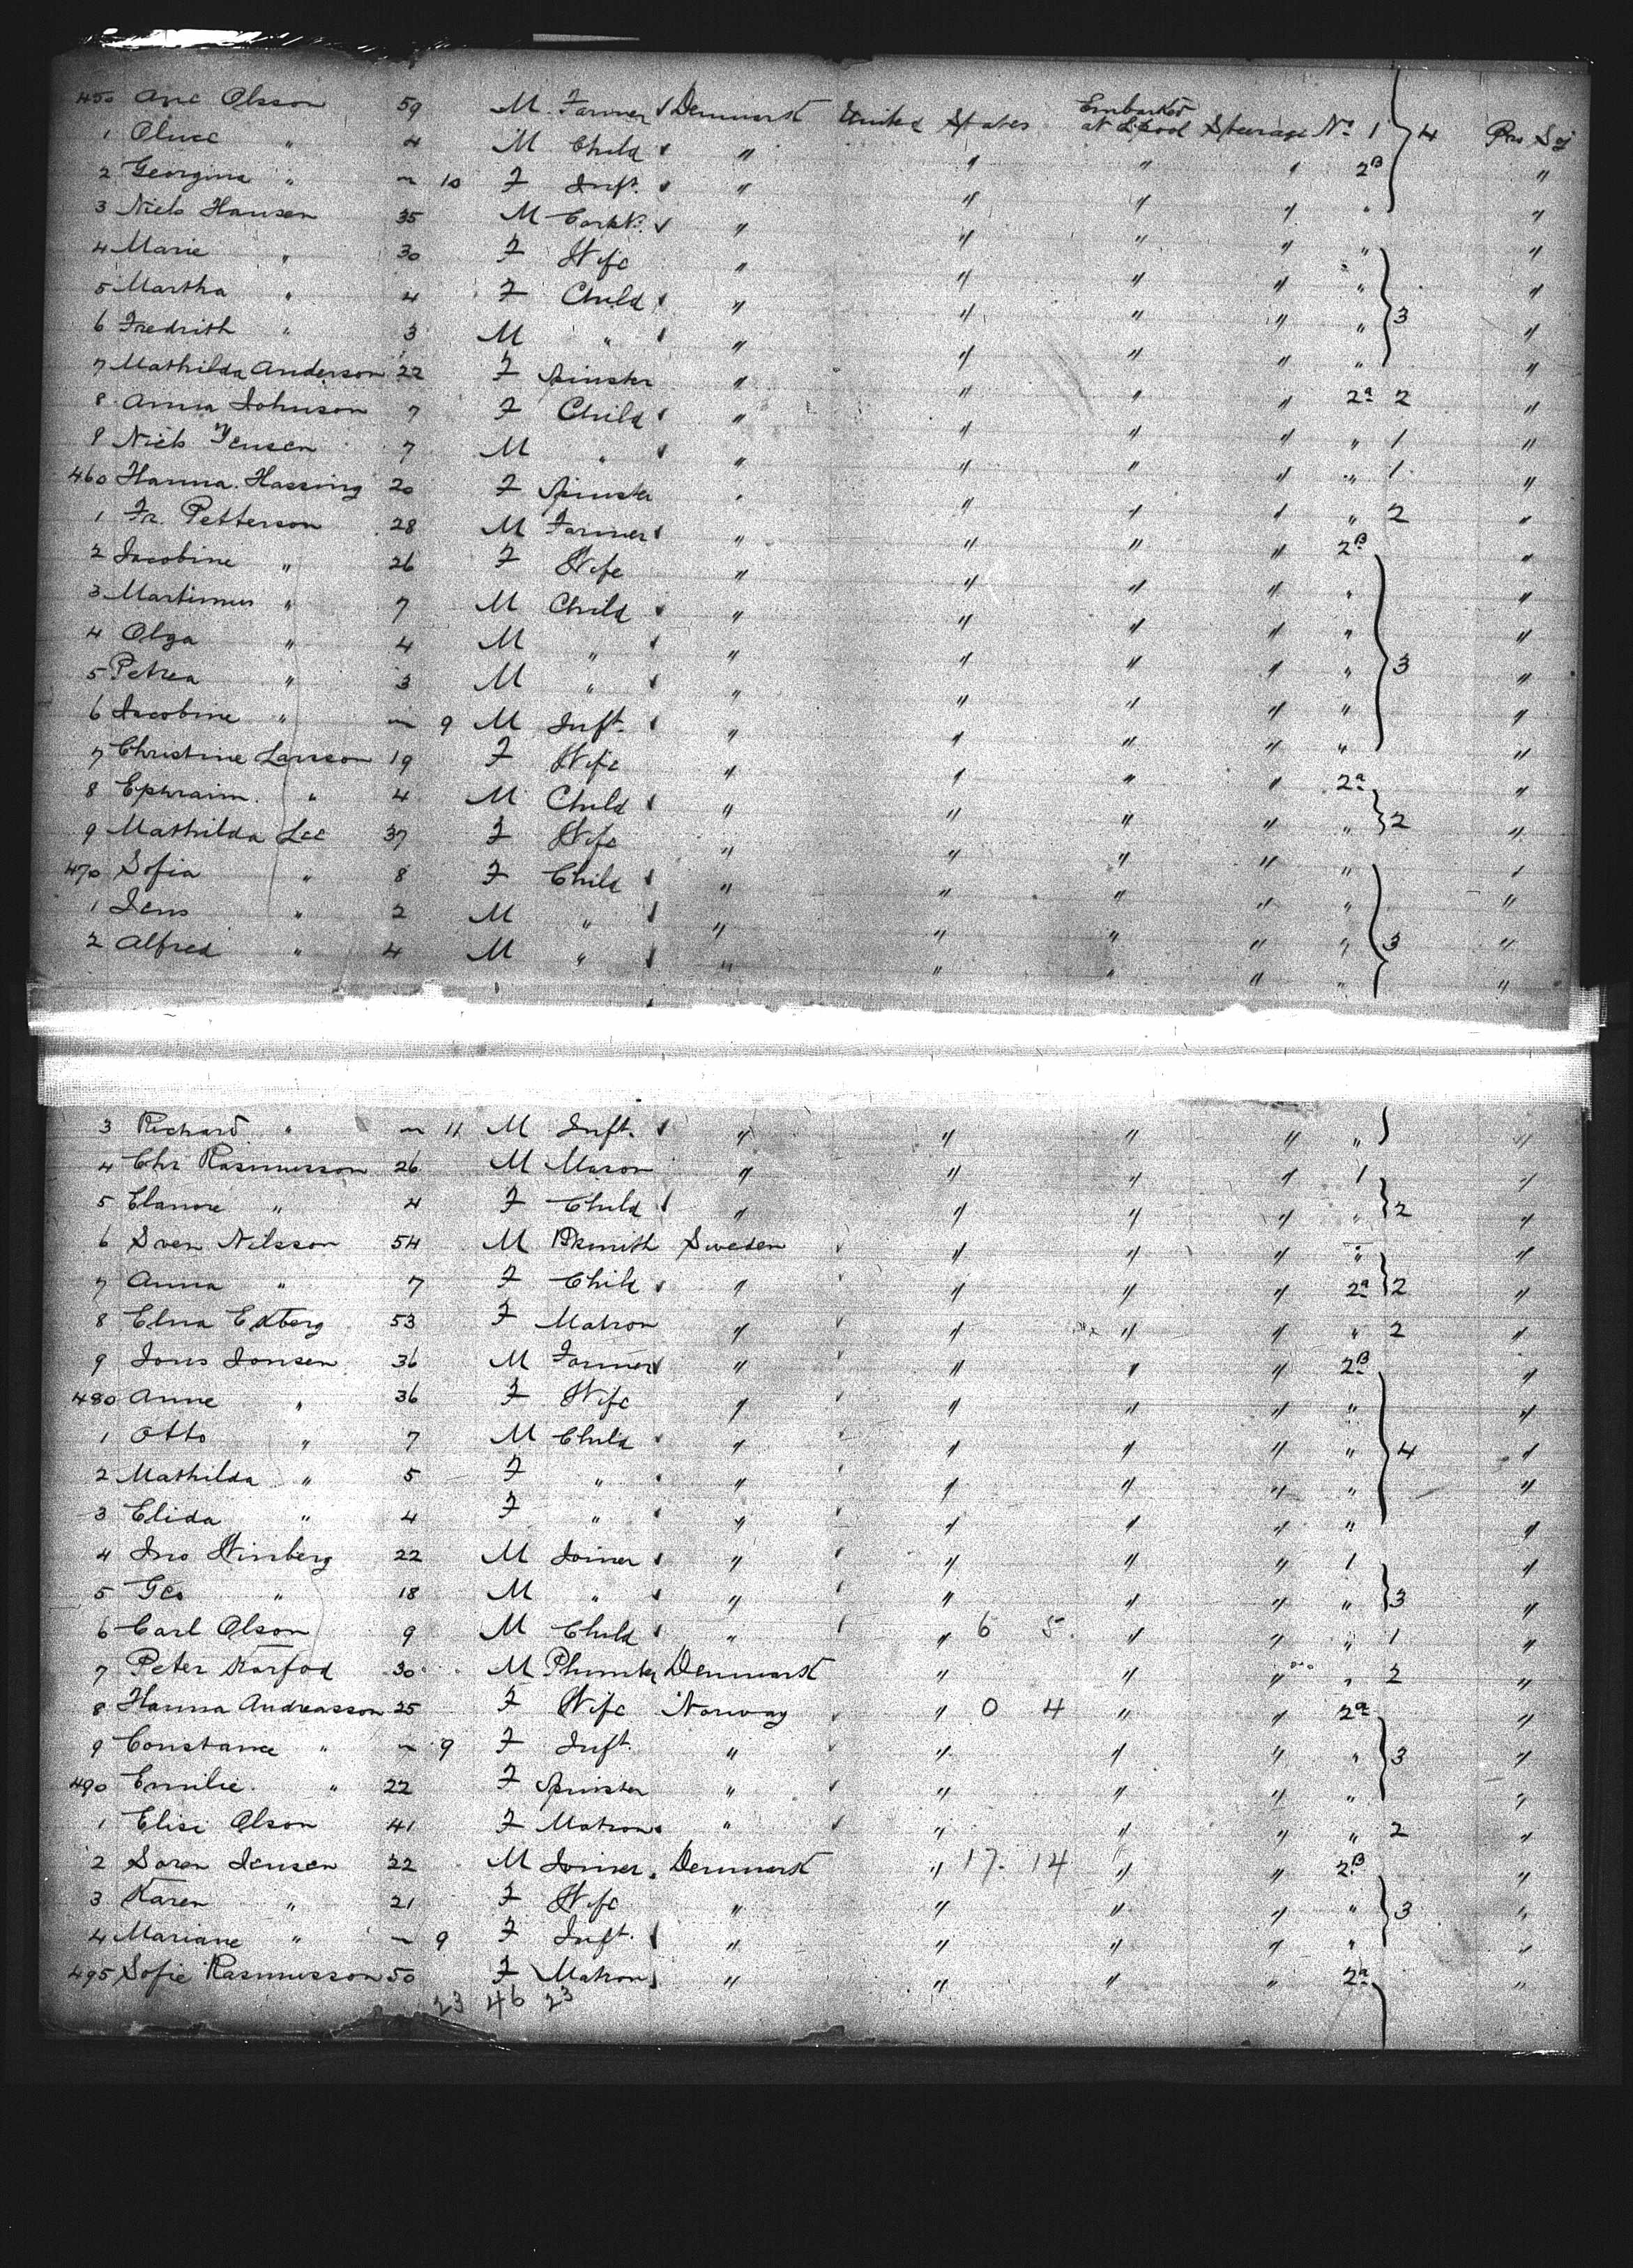 450 Olsson 59 M Farmer Denmark United States Embarked at L'pool Steerage No 1 4 Pro Soj
1 " 4 M Child " " " " 2B "
2 Georgina " 10 F Inft. " " " " " "
3 Niels Hansen 35 M " " " " " "
4 Marie " 30 F Wife " " " " " "
5 Martha " 4 F Child " " " " " 3 "
6 Fredrith " 3 M " " " " " " "
7 Mathilda Anderson 22 F Spinster " " " " 2a 2 "
8 Anna Johnson 7 F Child " " " " " 1 "
9 Niels Jensen 7 M " " " " " " 1 "
460 Hanna Hassing 20 F Spinster " " " " " 2 "
1 Fr. Petterson 28 M Farmer " " " " 2B "
2 Jacobine " 26 F Wife " " " " " "
3 Martinus " 7 M Child " " " " " "
4 Olga " 4 M " " " " " " 3 "
5 Petrea " 3 M " " " " " " "
6 Jacobine " 9 M Inft. " " " " " "
7 Christine Larsson 19 F Wife " " " " 2a "
8 Ephraim " 4 M Child " " " " " 2 "
9 Mathilda Lee 37 F Wife " " " " " "
470 Sofia " 8 F Child " " " " " "
1 Jens " 2 M " " " " " " 3 "
2 Alfred " 4 M " " " " " " "
3 Richard " 11 M Inft. " " " " " "
4 Chr Rasmusson 26 M Mason " " " " 1 "
5 Elanore " 4 F Child " " " " " 2 "
6 Sven Nilsson 54 M Bksmith Sweden " " " " "
7 Anna " 7 F Child " " " " 2a 2 "
8 Elna Ekberg 53 F Matron " " " " " 2 "
9 Jons Jonsen 36 M Farmer " " " " 2B "
480 Anne " 36 F Wife " " " " " "
1 Otto " 7 M Child " " " " " 4 "
2 Mathilda " 5 F " " " " " " "
3 Elida " 4 F " " " " " " "
4 Jno Winberg 22 M Joiner " " " " 1 "
5 Geo " 18 M " " " " " " 3 "
6 Carl Olson 9 M Child " " 6 5 " " " 1 "
7 Peter Korfod 30 M Plumber Denmark " " " " 2 "
8 Hanna Andreasson 25 F Wife Norway " 0 4 " " 2a "
9 Constance " 9 F Inft. " " " " " 3 "
490 Emilie " 22 F Spinster " " " " " "
1 Elise Olson 41 F Matron " " " " " 2 "
2 Soren Jensen 22 M Joiner Denmark " 17. 14 " " 2B "
3 Karen " 21 F Wife " " " " " 3 "
4 Mariane " 9 F Inft. " " " " " "
495 Sofie Rasmusson 50 F Matron " " " " 2a "
23 46 23